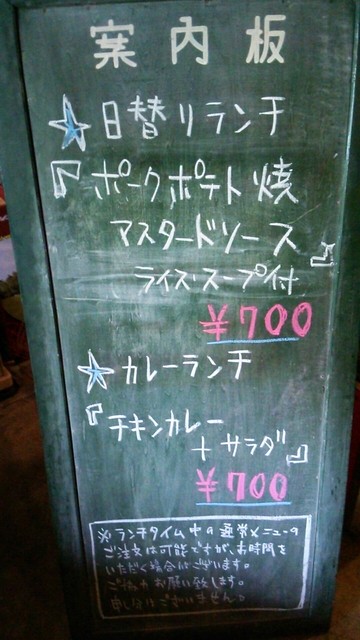 案内板
☆日替りランチ
『ポークポテト焼
マスタードソース』
ライス・スープ付
¥700
☆カレーランチ
『チキンカレー
+サラダ』
¥700
※ランチタイム中の通常メニューの
ご注文は可能ですが、お時間を
いただく場合がございます。
ご協力お願い致します。
申し訳ございません。